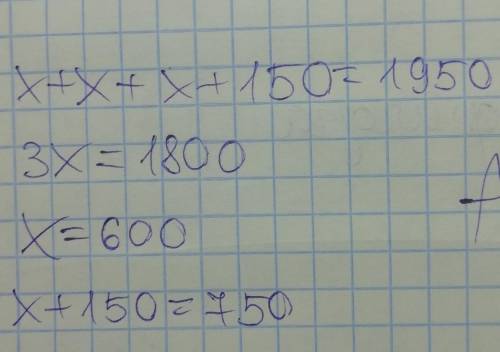 x+x+x+150=1950
3x=1800
x=600
x+150=750